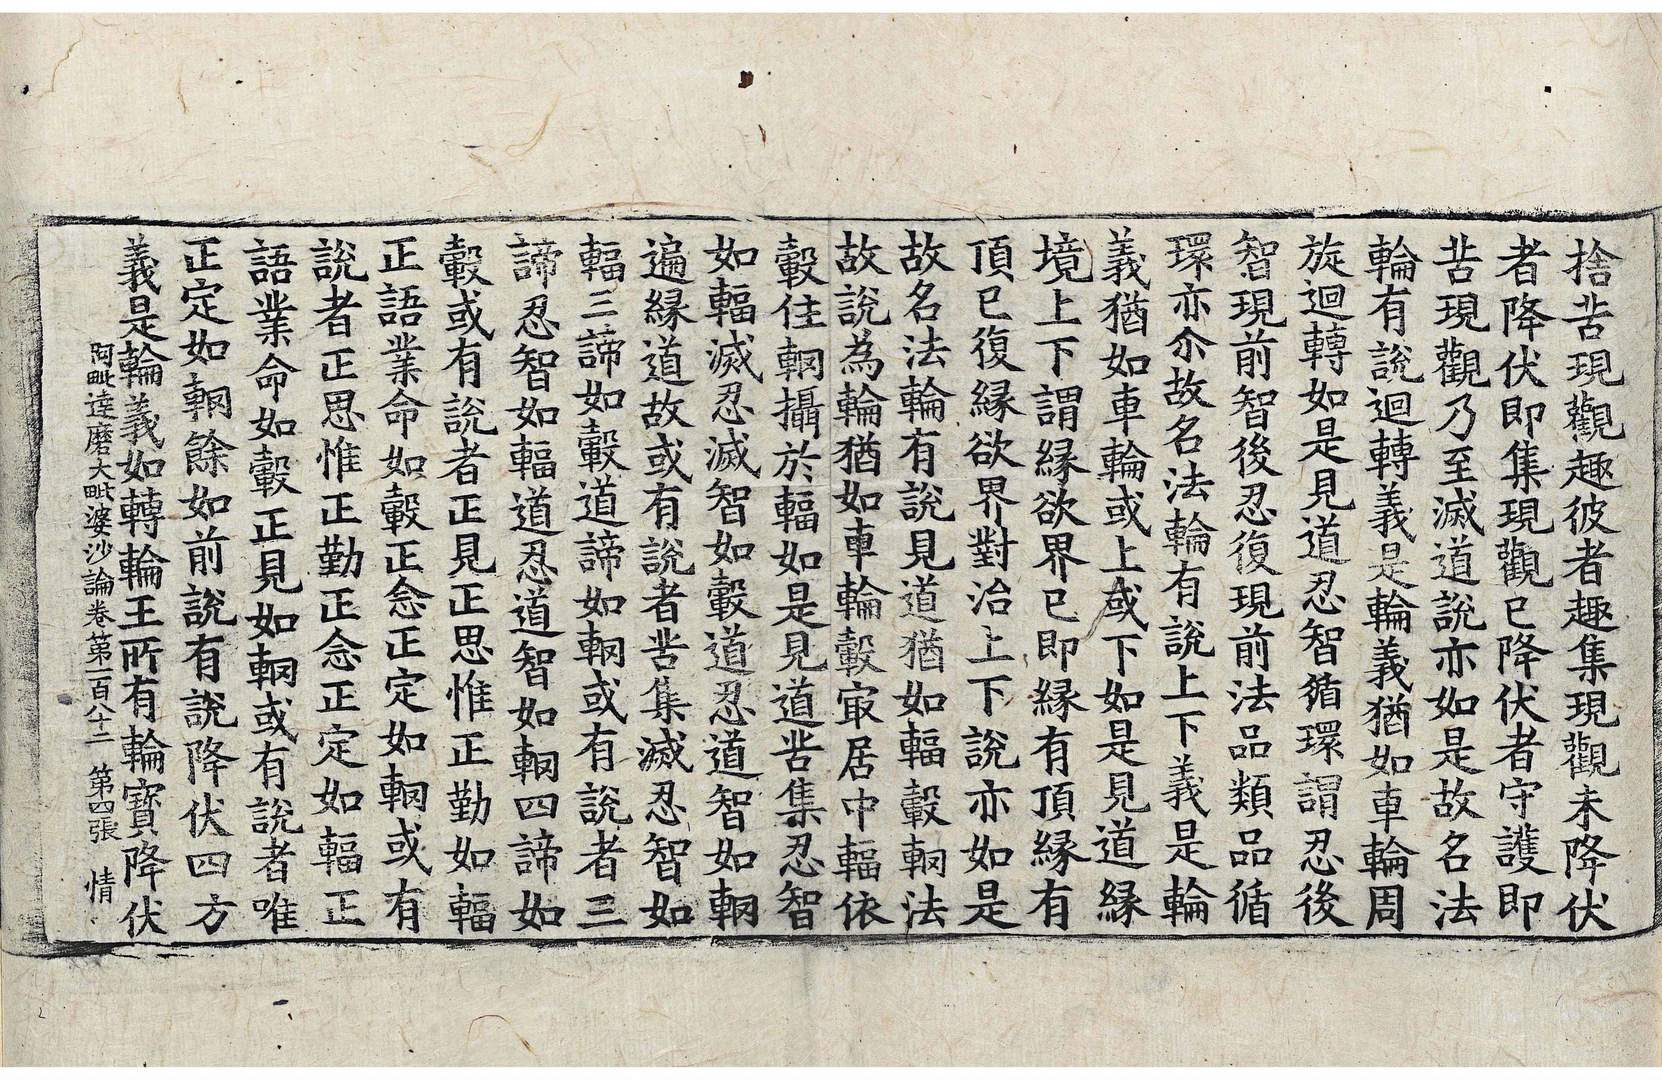 捨苦現觀趣彼者趣集現觀未降伏
者降伏即集現觀已降伏者守護即
苦現觀乃至滅道說亦如是故名法
輪有說迴轉義是輪義猶如車輪周
旋迴轉如是見道忍智循環謂忍後
智現前智後忍復現前法品類品循
環亦尒故名法輪有說上下義是輪
義猶如車輪或上或下如是見道緣
境上下謂緣欲界已即緣有頂緣有
頂已復緣欲界對治上下說亦如是
故名法輪有說見道猶如輻轂輞法
故說為輪猶如車輪轂㝡居中輻依
轂住輞攝於輻如是見道苦集忍智
如輻滅忍滅智如轂道忍道智如輞
遍緣道故或有說者苦集滅忍智如
輻三諦如轂道諦如輞或有說者三
諦忍智如輻道忍道智如輞四諦如
轂或有說者正見正思惟正勤如輻
正語業命如轂正念正定如輞或有
說者正思惟正勤正念正定如輻正
語業命如轂正見如輞或有說者唯
正定如輞餘如前說有說降伏四方
義是輪義如轉輪王所有輪寶降伏
阿毗達磨大毗婆沙論卷第一百八十二 第四張 情